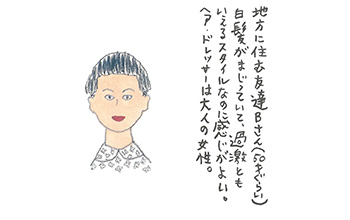 地方に住む友達Bさん(50才ぐらい)
白髪がまじっていて、過激とも
いえるスタイルなのに感じがよい。
ヘア・ドレッサーは大人の女性。